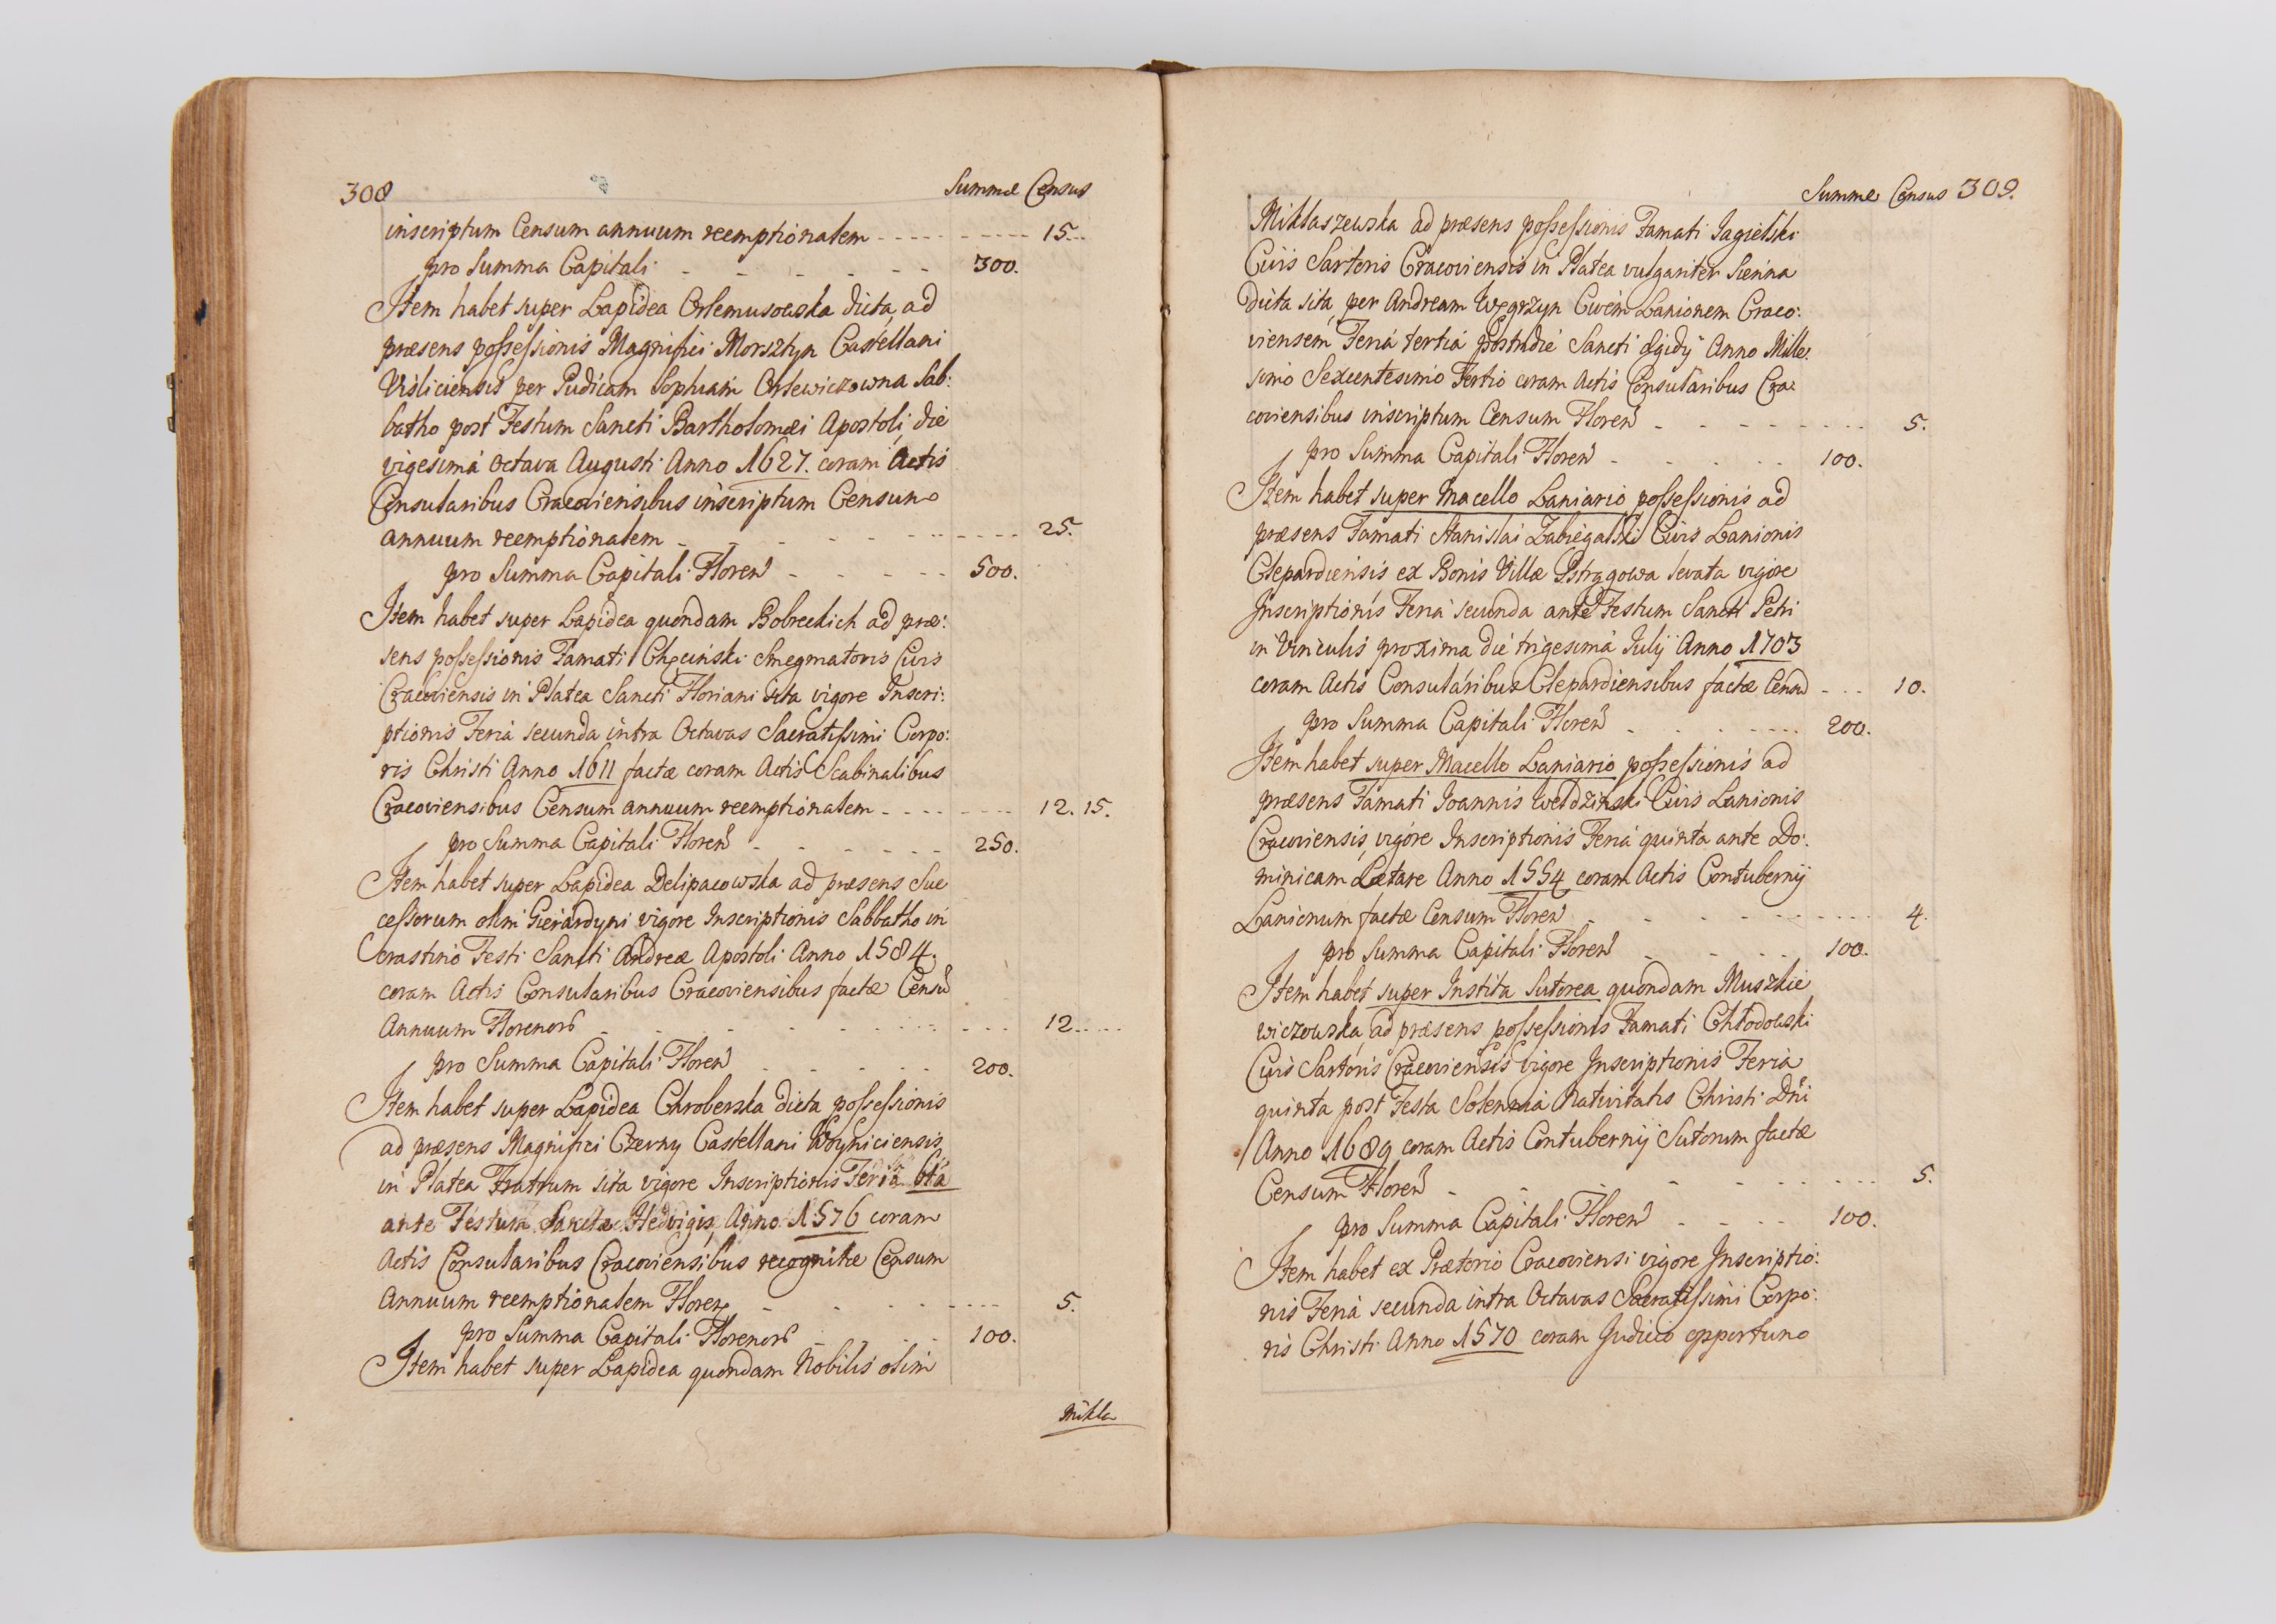 308 Summæ Census
inscriptum Censum annuum reemptionalem 15.
pro Summa Capitali 300.
Item habet super Lapidea Orlemusowska dicta, ad
præsens possessionis Magnifici Morsztyn Castellani
Visliciensis per Pudicam Sophiam Orlewiczowna Sab:
batho post Festum Sancti Bartholomæi Apostoli, die
vigesima octava Augusti Anno 1627. coram Actis
Consularibus Cracoviensibus inscriptum Censum
annuum reemptionalem 25.
pro Summa Capitali Floren 500.
Item habet super Lapidea quondam Bobreckich ad præ:
sens possessionis Famati Chęciński Smegmatoris Civis
Cracoviensis in Platea Sancti Floriani sita vigore Inscri:
ptionis Feria secunda intra Octavas Sacratissimi Corpo:
ris Christi Anno 1611 factæ coram Actis Scabinalibus
Cracoviensibus Censum annuum reemptionalem 12. 15.
pro Summa Capitali Floren 250.
Item habet super Lapidea Delipacowska ad præsens Suc
cessorum olim Gierardyni vigore Inscriptionis Sabbatho in
Crastino Festi Sancti Andreæ Apostoli Anno 1584.
coram Actis Consularibus Cracoviensibus factæ Censu
Annuum Florenor 12.
pro Summa Capitali Floren 200.
Item habet super Lapidea Chroberska dicta possessionis
ad præsens Magnifici Czerny Castellani Woyniciensis
in Platea Fratrum sita vigore Inscriptionis Feria 6ta
ante Festum Sanctæ Hedvigis, Anno 1576 coram
Actis Consularibus Cracoviensibus recognitæ Censum
Annuum reemptionalem Floren 5.
pro Summa Capitali Florenor 100.
Item habet super Lapidea quondam Nobilis olim
Mikla
Summæ Census 309.
Miklaszewska ad præsens possessionis Famati Jagielski
Civis Sartoris Cracoviensis in Platea vulgariter Sienna
dicta sita, per Andream Węgrzyn Civem Lanionem Craco:
viensem Feria tertia postridie Sancti Ægidÿ Anno Mille:
simo Sexcentesimo Tertio coram Actis Consularibus Cra:
coviensibus inscriptum Censum Floren 5.
pro Summa Capitali Floren 100.
Item habet super Macello Laniario possessionis ad
præsens Famati Stanislai Zabiegalski Civis Lanionis
Clepardiensis ex Bonis Villæ Pstrągowa levata vigore
Inscriptionis Feria secunda ante Festum Sancti Petri
in Vinculis proxima die trigesima Julÿ Anno 1703
coram Actis Consularibus Clepardiensibus factæ Censu 10.
pro Summa Capitali Floren 200.
Item habet super Macello Laniario possessionis ad
præsens Famati Joannis Civis Lanionis
Cracoviensis, vigore Inscriptionis Feria quinta ante Do:
minicam Lætare Anno 1554 coram Actis Contubernÿ
Lanionum factæ Censum Floren 4.
pro Summa Capitali Floren 100.
Item habet super Instita Sutorea quondam Muszkie
wiczowska, ad præsens possessionis Famati Chłodowski
Civis Sartoris Cracoviensis vigore Inscriptionis Feria
quinta post Festa Solennia Nativitatis Christi Dni
Anno 1689 coram Actis Contubernÿ Sutorum factæ
Censum Floren 5.
pro Summa Capitali Floren 100.
Item habet ex Prætorio Cracoviensi vigore Inscriptio:
nis Feria secunda intra Octavas Sacratissimi Corpo:
ris Christi Anno 1570 coram Judicio opportuno